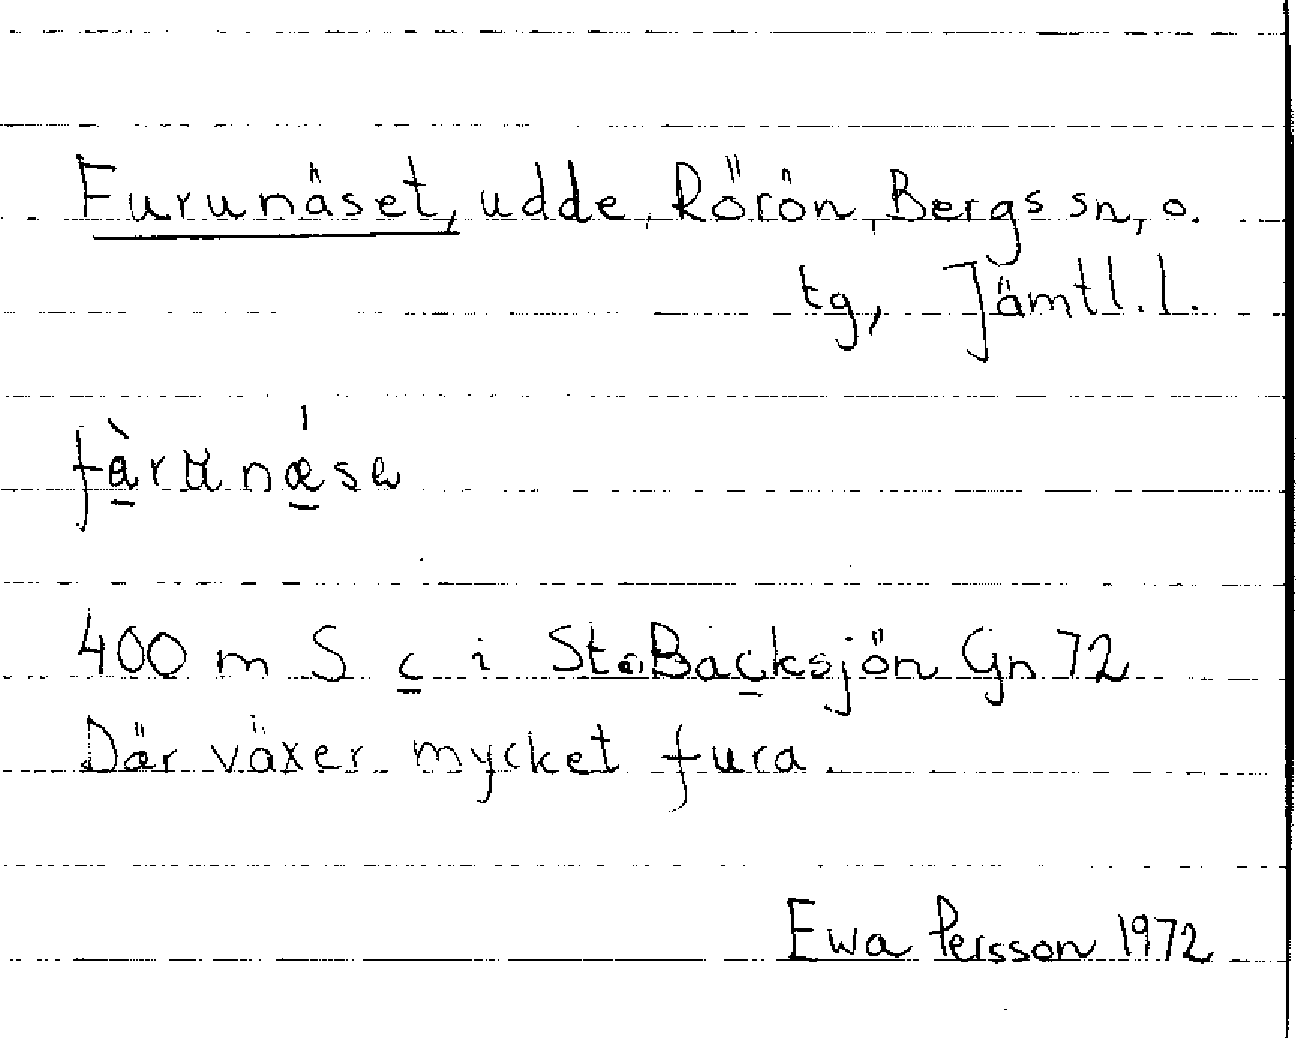 Furunäset, udde, Rörön, Bergs sn, o.
tg, Jämtl. l.
400 m S c i St. Backsjön Gn 72
Där växer mycket fura.
Ewa Persson 1972